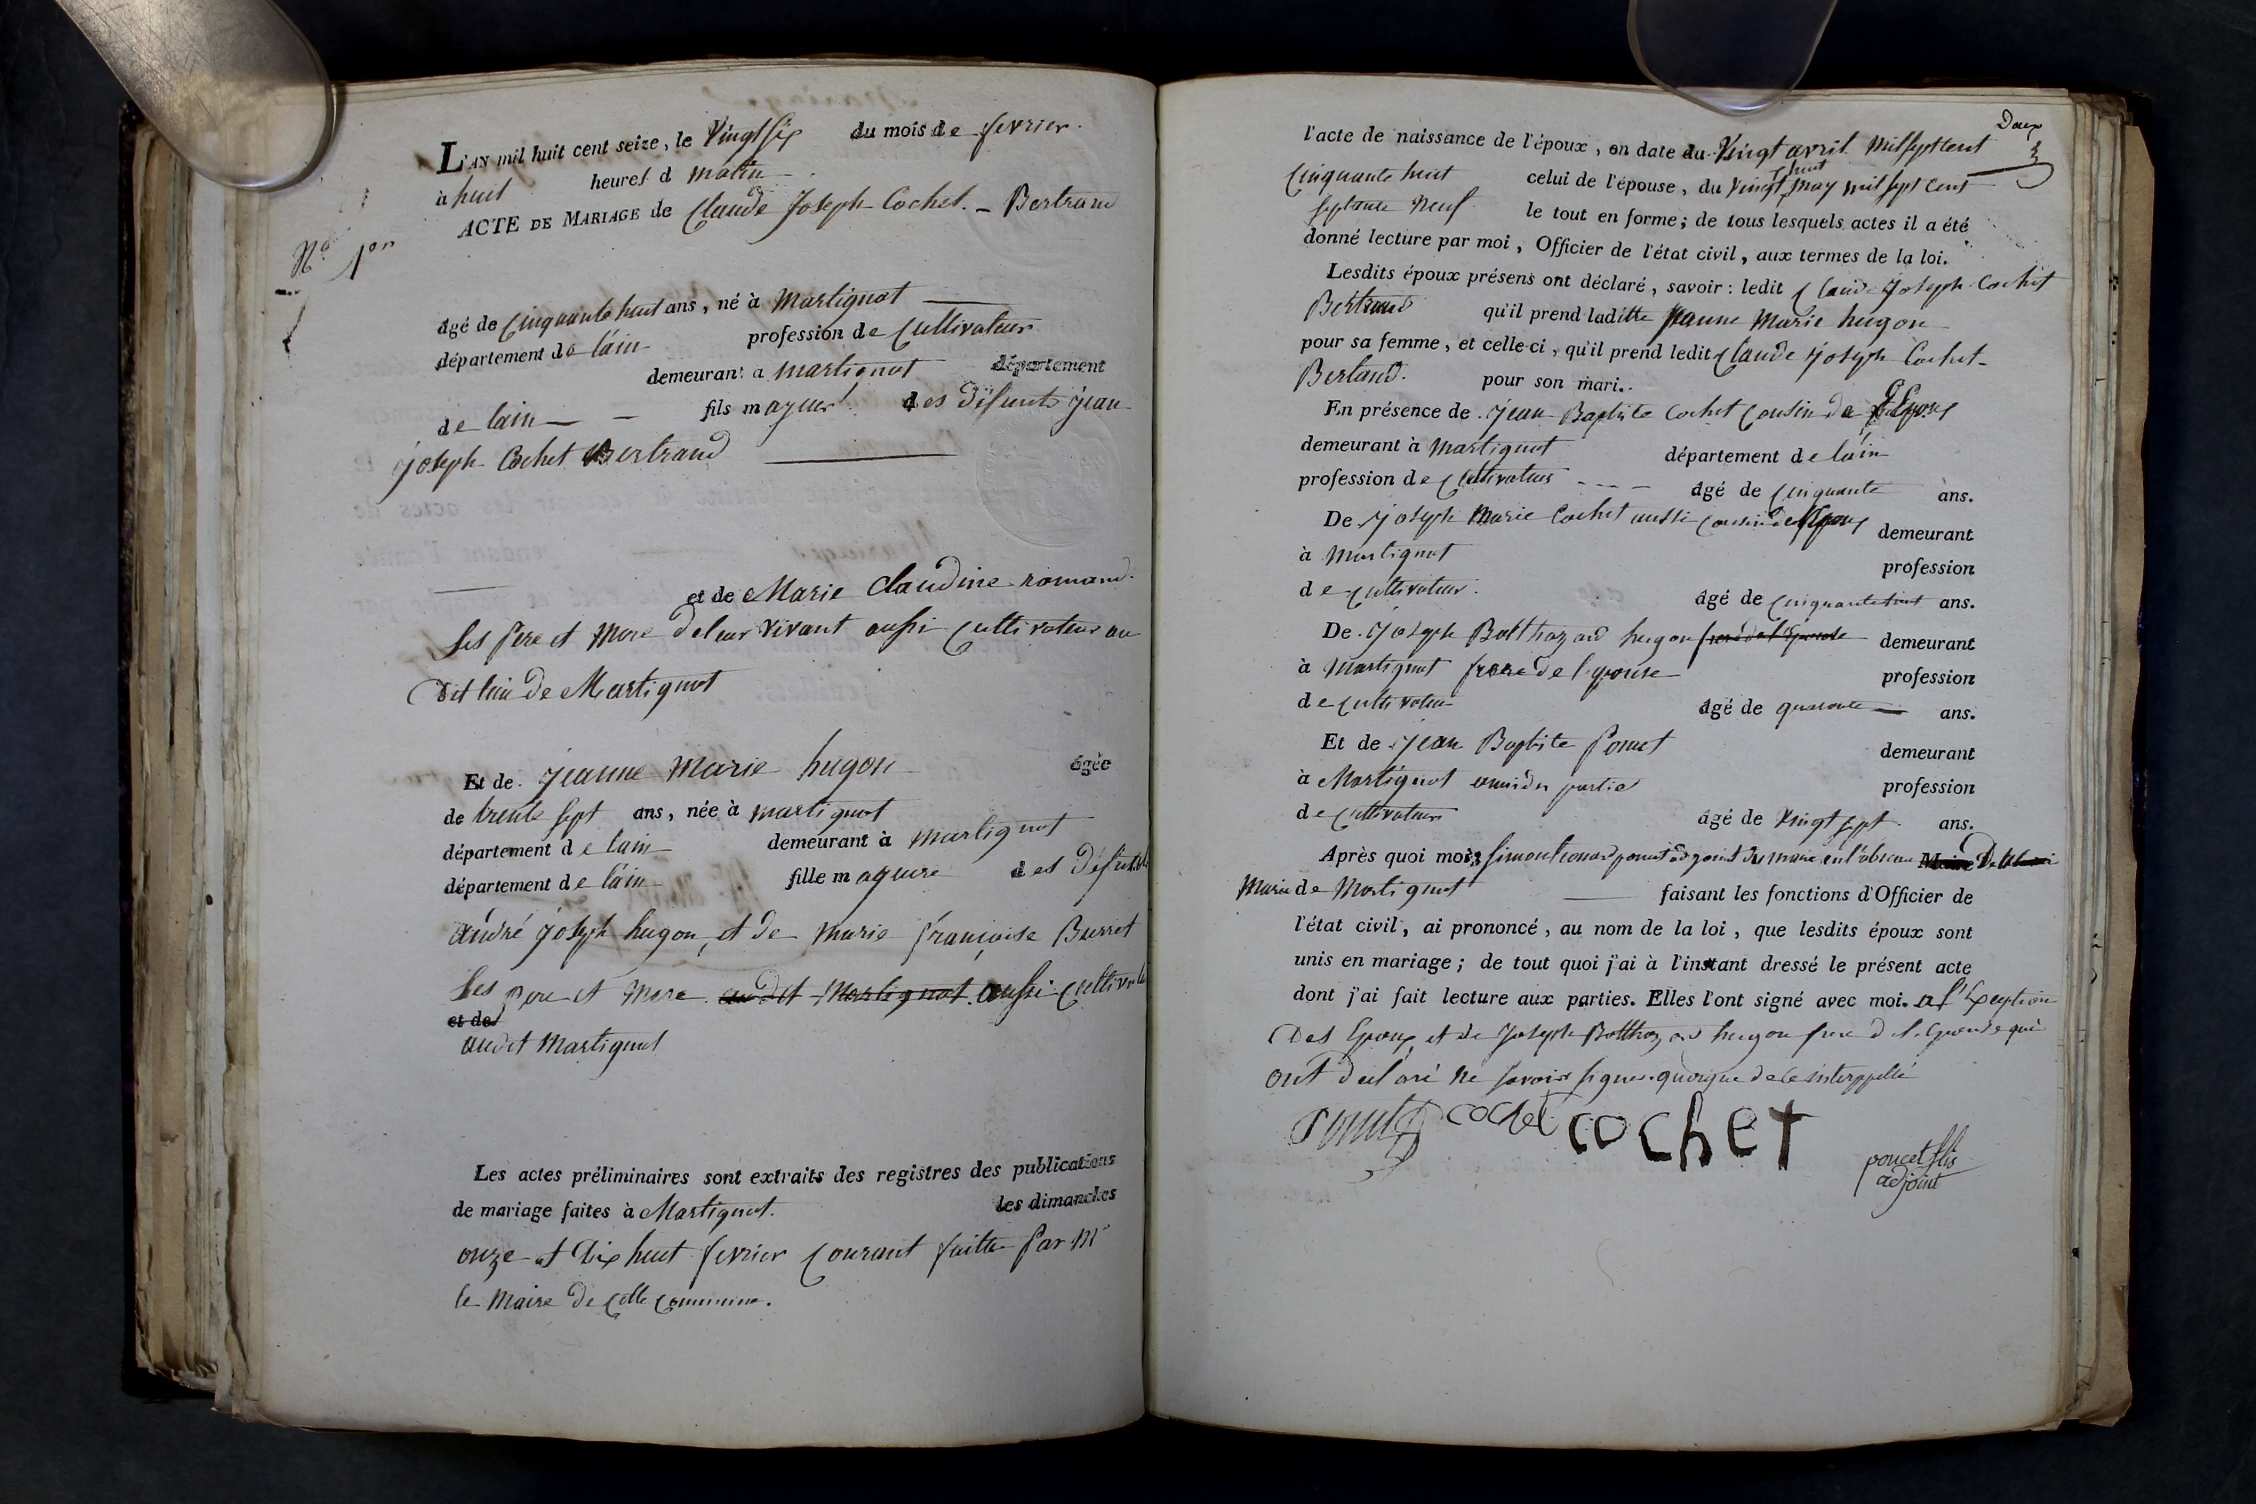 L'AN mil huit cent seize, le Vingt six du mois de fevrier
à huit heures d matin
ACTE DE MARIAGE de Claude Joseph Cochet - Bertrand
No 1er
âgé de Cinquante huit ans, né à Martignat
département de lain profession de Cultivateur
demeurant a martignat département
de lain fils mayeur des défunts jean
joseph Cochet Bertrand
et de Marie Claudine romand
Ses pere et Mere deleur Vivant aussi Cultivateur au
dit lieu de Martignat
Et de jeanne Marie hugon âgée
de trente sept ans, née à martignat
département de lain demeurant à martignat
département de lain fille mayeure des défunts
André joseph hugon, et de marie françoise Burret
Ses pere et Mere audit Martignat aussi Cultiv
et de
audit Martignat
Les actes préliminaires sont extraits des registres des publications
de mariage faites à Martignat les dimanches
onze et Dix huit fevrier Courant faitte par Mr
le Maire de Cette Commune.
Deux
l'acte de naissance de l'époux, en date du Vingt avril Mil sept Cent
Cinquante huit celui de l'épouse, du Vingt huit may mil sept cent
septante Neuf le tout en forme; de tous lesquels actes il a été
donné lecture par moi, Officier de l'état civil, aux termes de la loi.
Lesdits époux présens ont déclaré, savoir: ledit Claude joseph Cochet
Bertrand qu'il prend laditte jeanne Marie hugon
pour sa femme, et celle-ci, qu'il prend ledit Claude joseph Cochet
Bertand pour son mari.
En présence de jean Baptiste Cochet Cousin de l'Epoux
demeurant à Martignat département de lain
profession de Cultivateur âgé de Cinquante ans.
De joseph Marie Cochet aussi Cousin de l'Epoux demeurant
à Martignat profession
de Cultivateur âgé de Cinquante huit ans.
De joseph Balthazard hugon frere de l'Epouse demeurant
à Martignat frere de l'epouse profession
de Cultivateur âgé de quarante ans.
Et de jean Baptiste Poncet demeurant
à Martignat ami des parties profession
de Cultivateur âgé de Vingt sept ans.
Après quoi moi, simon leonard poncet adjoint du maire en l'absence Maire De
Marie de Martignat faisant les fonctions d'Officier de
l'état civil, ai prononcé, au nom de la loi, que lesdits époux sont
unis en mariage; de tout quoi j'ai à l'instant dressé le présent acte
dont j'ai fait lecture aux parties. Elles l'ont signé avec moi. a l'Exception
Des Epoux et de Joseph Balthazard hugon frere d l'Epouse qui
ont declaré ne savoir signer quoique de ce interppellé
Poncet cochet cochet
poncet fils
adjoint